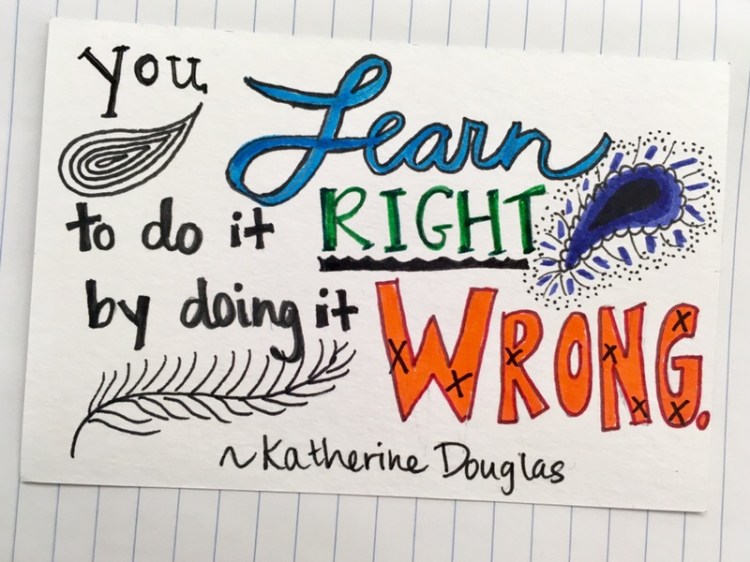 you Learn
to do it RIGHT
by doing it WRONG.
~Katherine Douglas